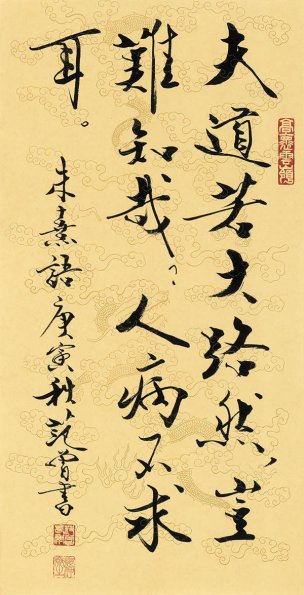 夫道若大路然，豈
難知哉，人病不求
耳。
朱熹語庚寅秋范曾書